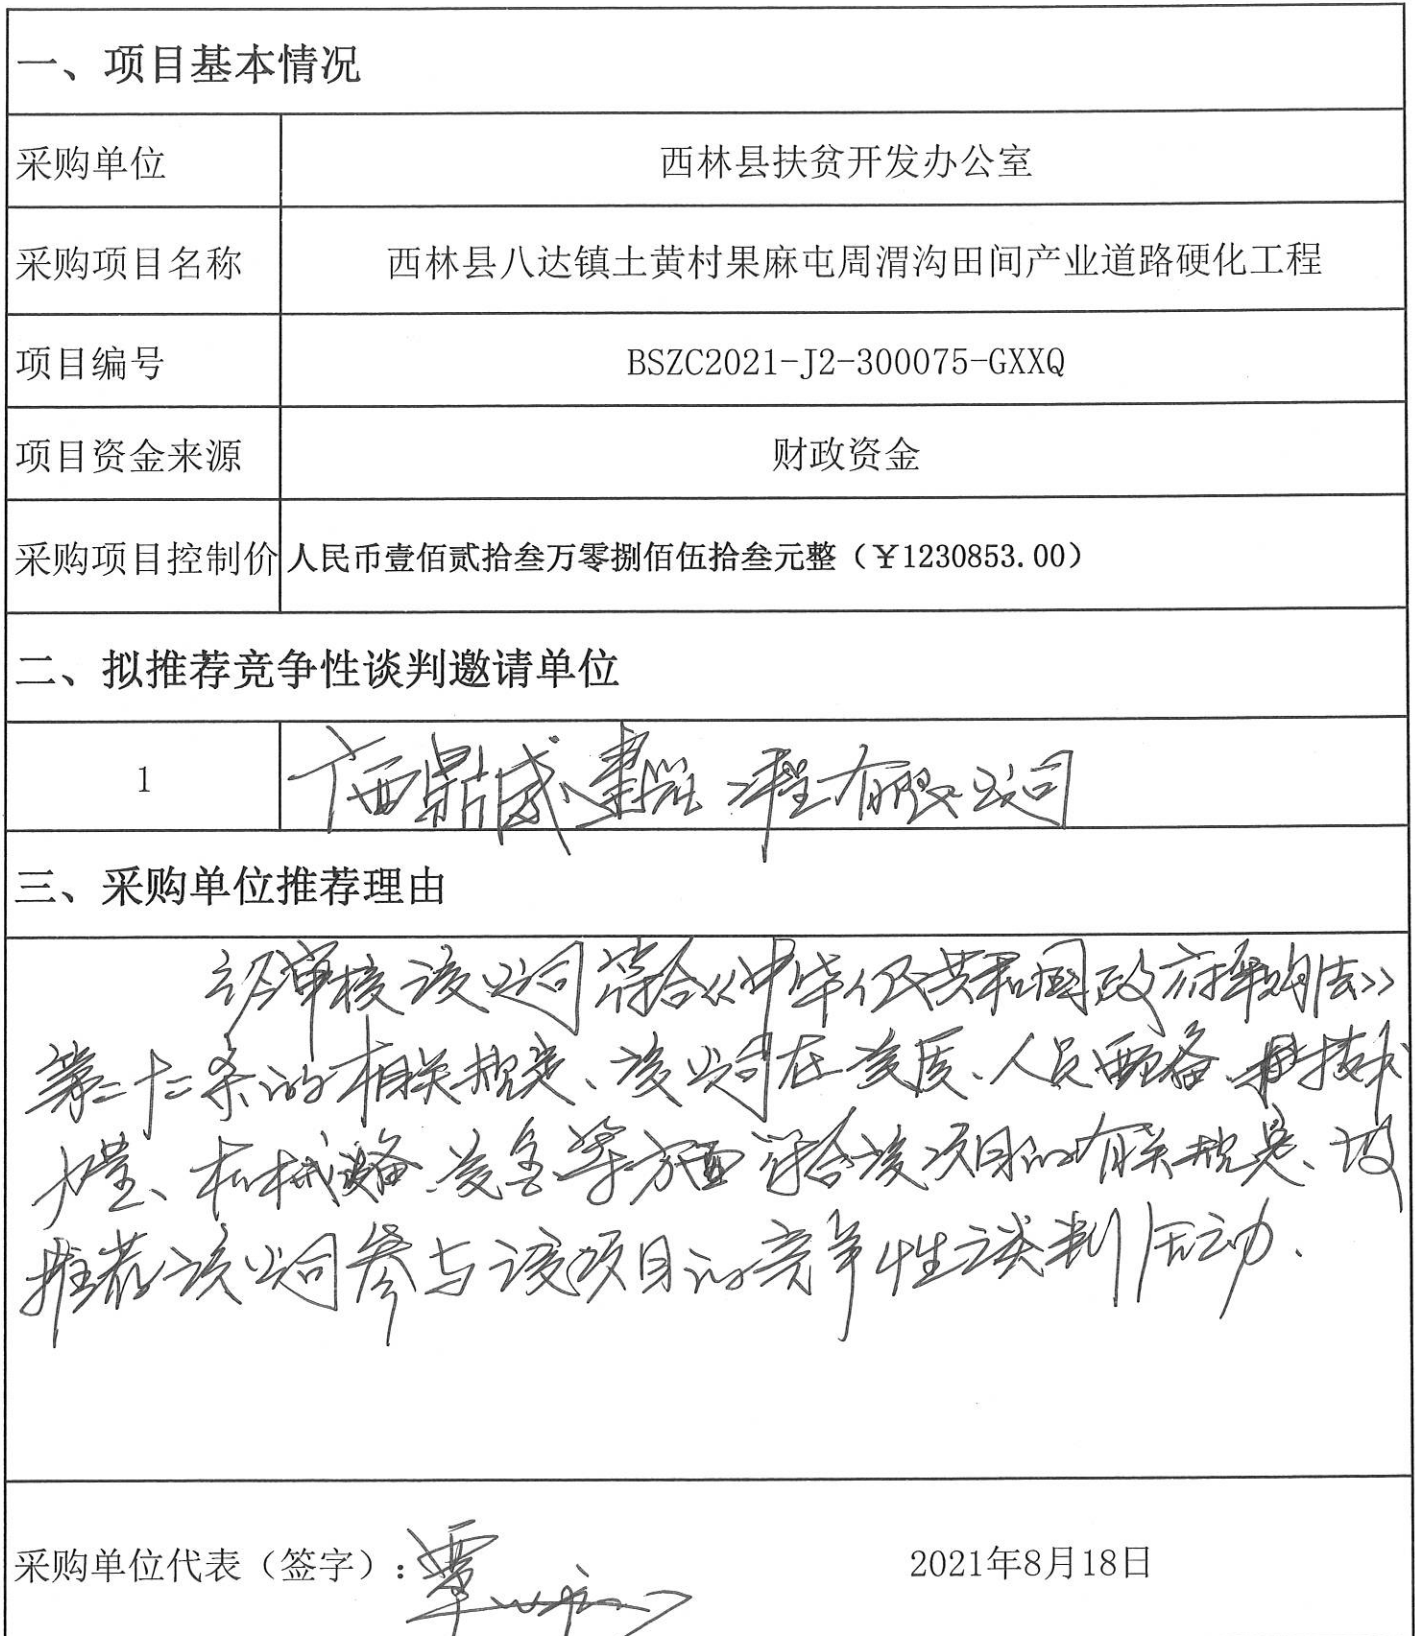 一、项目基本情况
采购单位 西林县扶贫开发办公室
采购项目名称 西林县八达镇土黄村果麻屯周渭沟田间产业道路硬化工程
项目编号 BSZC2021-J2-300075-GXXQ
项目资金来源 财政资金
采购项目控制价 人民币壹佰贰拾叁万零捌佰伍拾叁元整（￥1230853.00）
二、拟推荐竞争性谈判邀请单位
1 广西鼎盛建筑工程有限公司
三、采购单位推荐理由
经审核该公司符合《中华人民共和国政府采购法》
第二十二条的相关规定、该公司在资质、人员配备、技术
力量、机械设备、资金等方面符合该项目的有关规定、故
推荐该公司参与该项目的竞争性谈判活动、
采购单位代表（签字）：覃 2021年8月18日